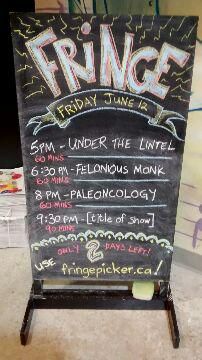 FRINGE
FRIDAY JUNE 12
5PM - UNDER THE LINTEL
60 MINS
6:30 PM - FELONIOUS MONK
60 MINS
8 PM - PALEONCOLOGY
60 MINS
9:30 PM - [title of show]
90 MINS
ONLY 2 DAYS LEFT!
USE fringepicker.ca!